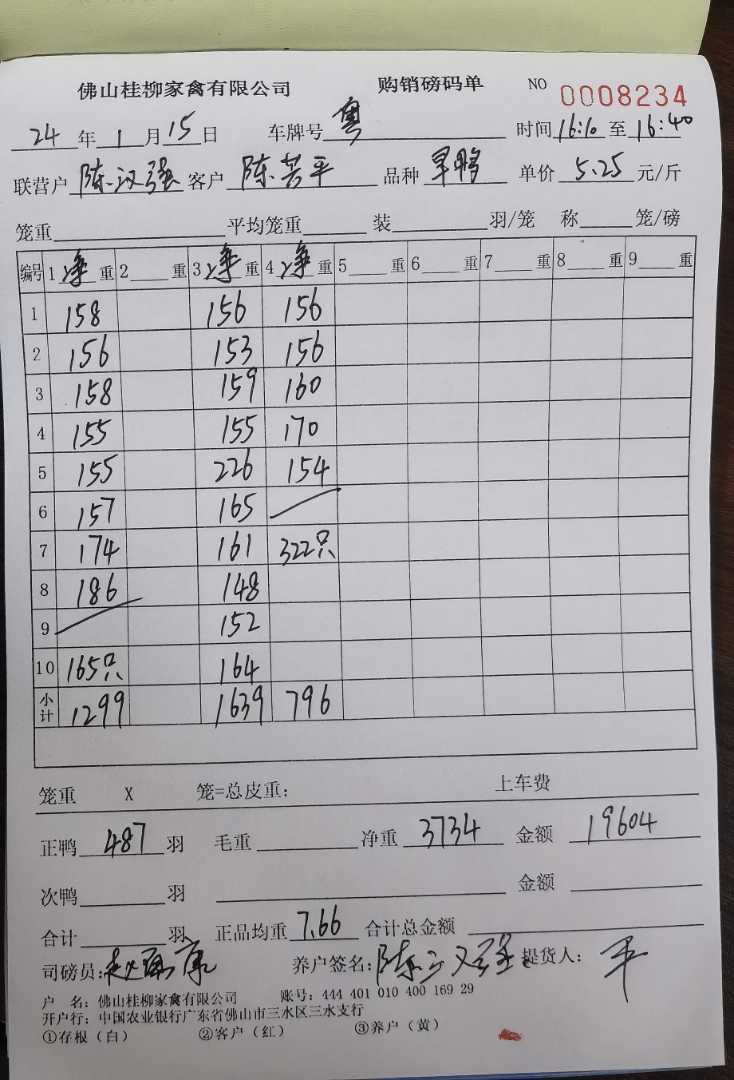 佛山桂柳家禽有限公司 购销磅码单 NO 0008234
24 年 1 月 15 日 车牌号 粤 时间 16:10 至 16:40
联营户 陈汉强 客户 陈芳平 品种 旱鸭 单价 5.25 元/斤
笼重 平均笼重 装 羽/笼 称 笼/磅
编号 1 净 重 2 重 3 净 重 4 净 重 5 重 6 重 7 重 8 重 9 重
1 158 156 156
2 156 153 156
3 158 159 160
4 155 155 170
5 155 226 154
6 157 165
7 174 161 322只
8 186 148
9 152
10 165只 164
小计 1299 1639 796
笼重 X 笼=总皮重: 上车费
正鸭 487 羽 毛重 净重 3734 金额 19604
次鸭 羽 金额
合计 羽 正品均重 7.66 合计总金额
司磅员: 养户签名: 陈汉强 提货人: 平
户 名: 佛山桂柳家禽有限公司 账号: 444 401 010 400 169 29
开户行: 中国农业银行广东省佛山市三水区三水支行
①存根（白） ②客户（红） ③养户（黄）